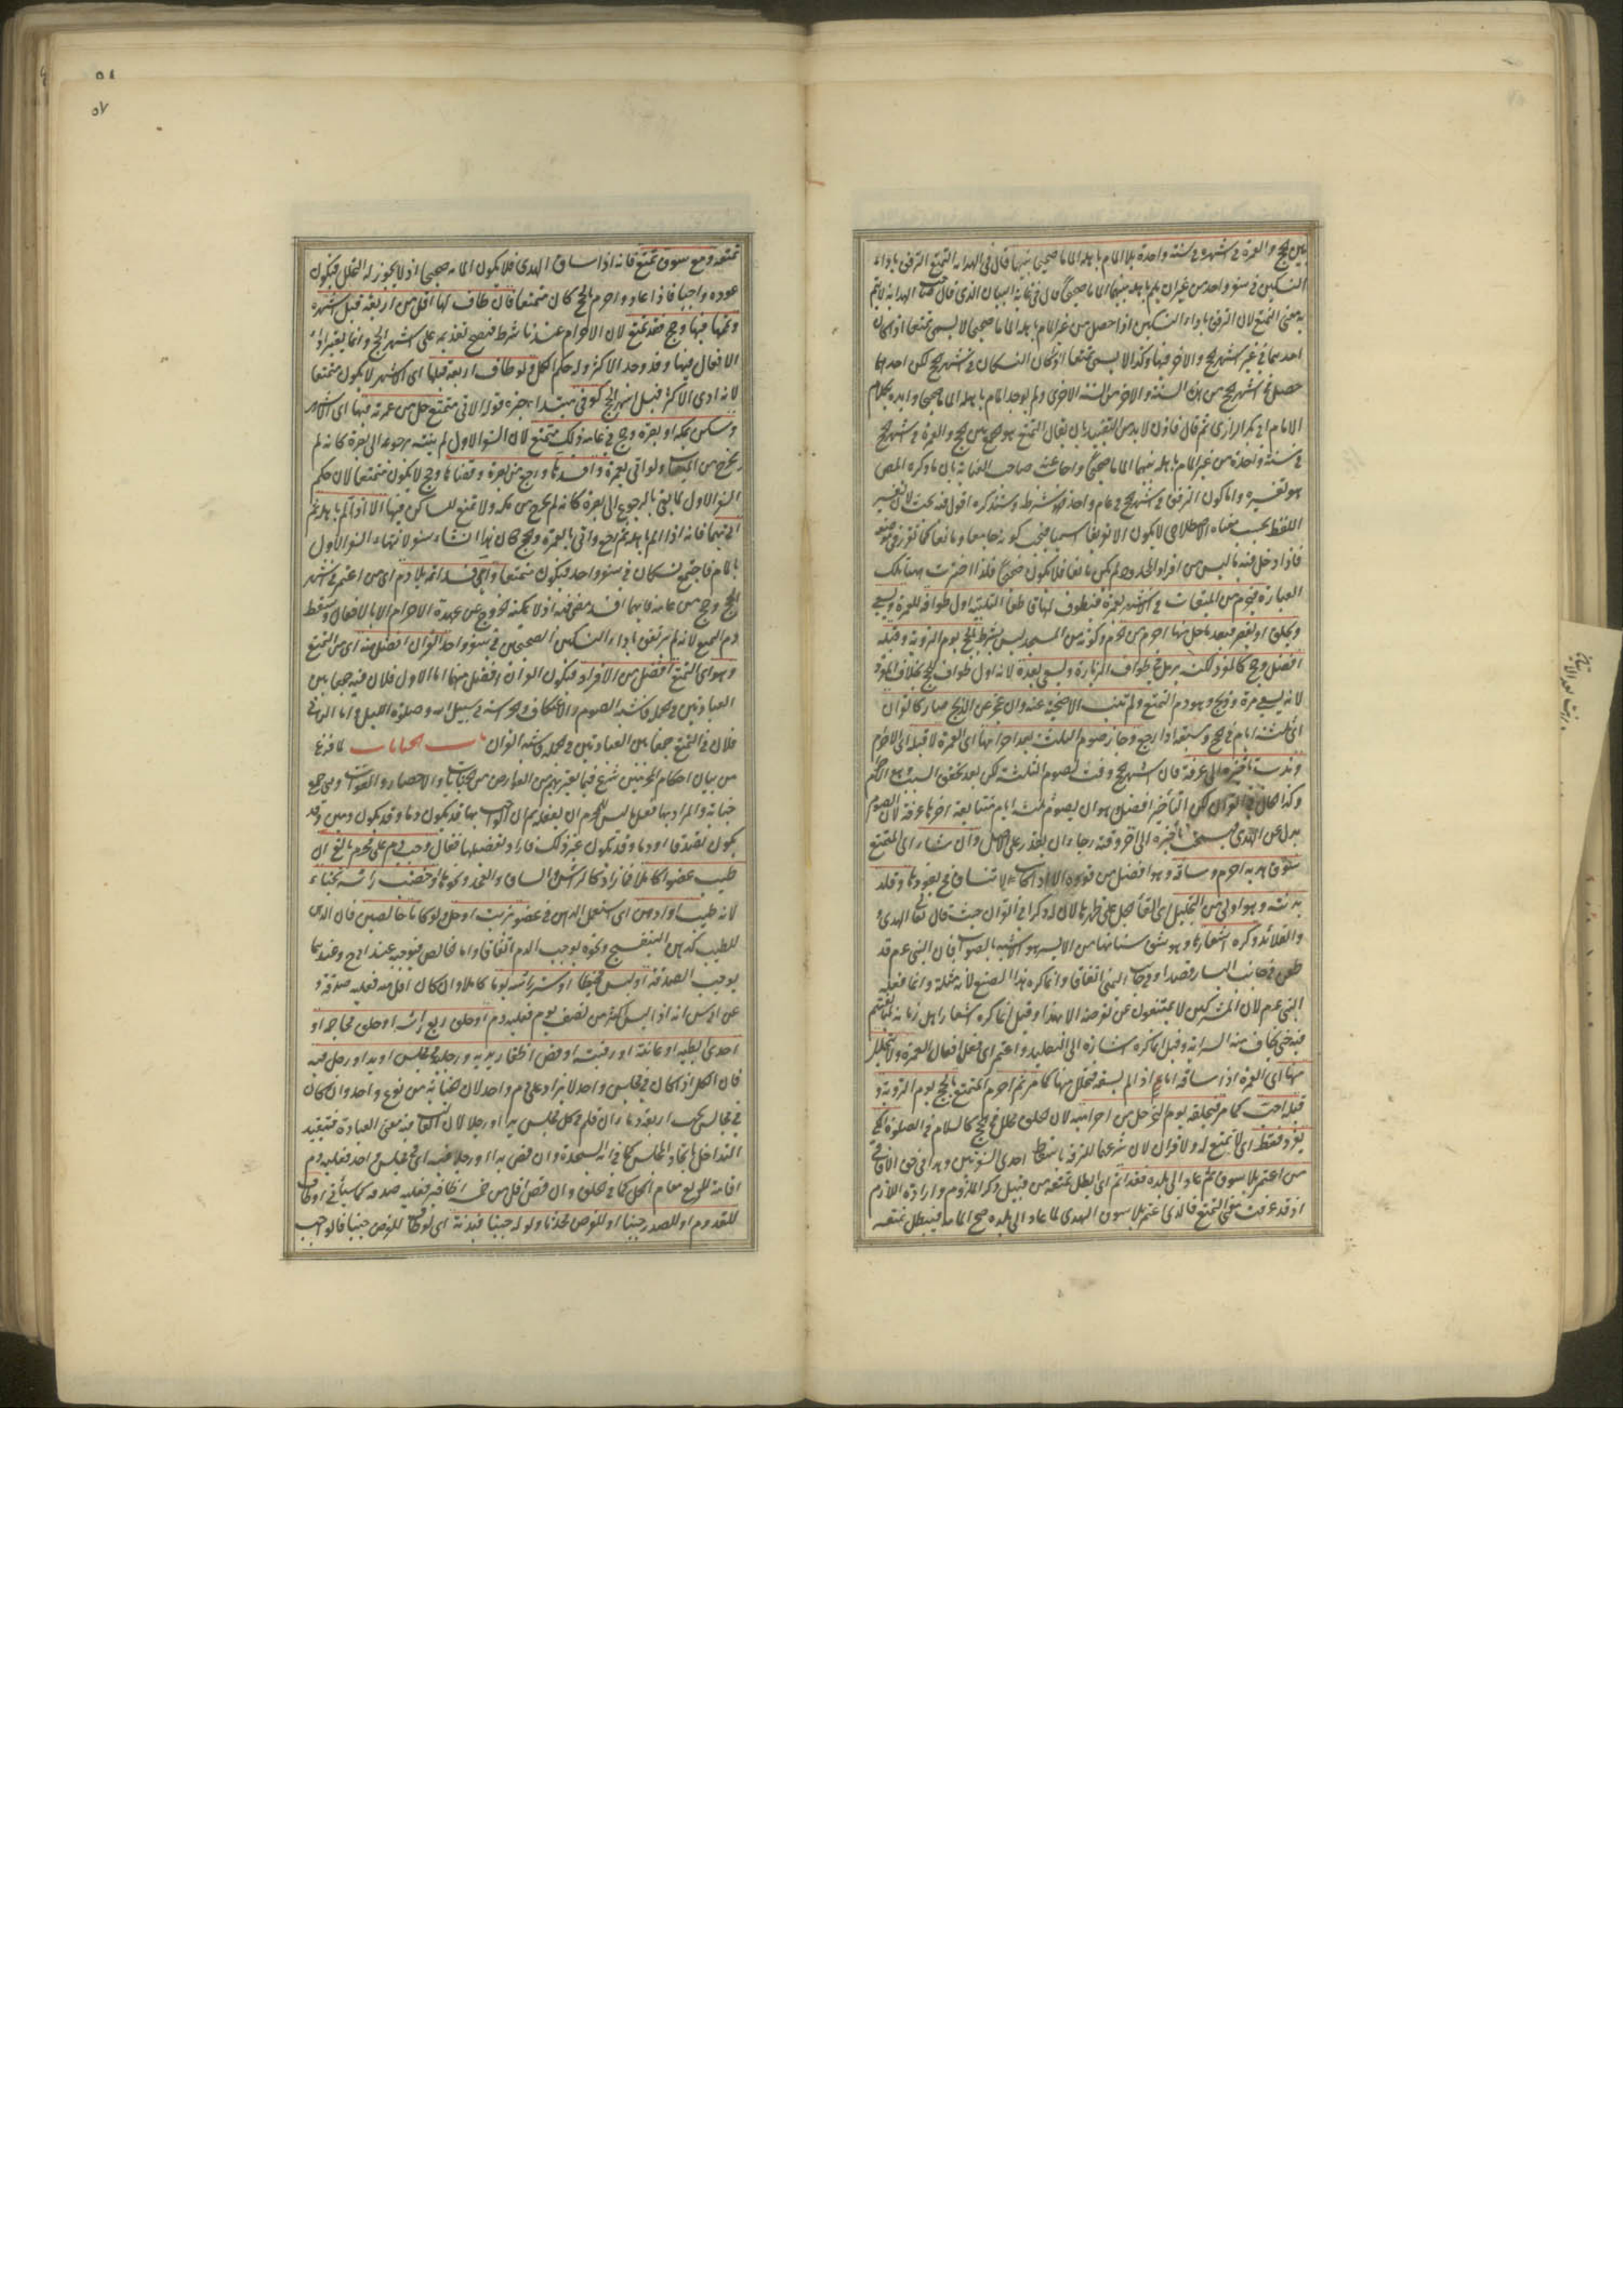 بين الحج والعمرة في اشهره في سنة واحدة بلا المام باهله الماما صحيحا بينهما قال في الهداية التمتع الترفق باداء
النسكين في سفر واحد من غير ان يلم باهله بينهما الماما صحيحا قال في غاية البيان الذي قال صاحب الهداية لا يتم
به معنى التمتع لان الترفق باداء النسكين اذا حصل من غير المام باهله الماما صحيحا لا يسمى تمتعا اذا كان
احدهما في غير اشهر الحج والاخر فيها وكذا لا يسمى متمتعا اذا كان النسكان في اشهر الحج لكن احدهما
حصل في اشهر الحج من هذه السنة والاخر من السنة الاخرى ولم يوجد المام باهله الماما صحيحا وايده بكلام
الامام ابي بكر الرازي ثم قال فاذن لا بد من التقييد بان يقال التمتع هو الجمع بين الحج والعمرة في اشهر الحج
في سنة واحدة من غير المام باهله بينهما الماما صحيحا واجاب عنه صاحب العناية بان ما ذكره المص
هو تفسيره واما كون الترفق في اشهر الحج في عام واحد فهو شرطه وسنذكره اقول فيه بحث لان تفسير
اللفظ بحسب معناه الاصطلاحي لا يكون الا تعريفا اسميا فيجب كونه جامعا ومانعا كما تقرر في موضعه
فاذا دخل فيه ما ليس من افراد المحدود لم يكن مانعا فلا يكون صحيحا فلذا اخترت ههنا تلك
العبارة فيحرم من الميقات في الاشهر بعمرة فيطوف لها قاطعا التلبية اول طوافه للعمرة ويسعى
ويحلق او يقصر فبعد ما حل منها احرم من الحرم وكونه من المسجد ليس بشرط بالحج يوم التروية وقبله
افضل وحج كالمفرد لكنه يرمل في طواف الزيارة ويسعى بعده لانه اول طواف للحج بخلاف المفرد
لانه يسعى مرة وذبح وهو دم التمتع ولم تنب الاضحية عنه وان عجز عن الذبح صار كالقران
اي ثلثة ايام في الحج وسبعة اذا رجع وجاز صوم الثلثة بعد احرامها اي العمرة لا قبله اي الاحرام
وندب تاخيره الى عرفة فان اشهر الحج وقت لصوم الثلثة لكن بعد تحقق السبب وهو الاحرام
وكذا الحال في القران لكن التأخير افضل وهو ان يصوم ثلثة ايام متتابعة اخرها عرفة لان الصوم
بدل عن الهدي فيستحب تاخيره الى اخر وقته رجاء ان يقدر على الاصل وان شاء اي المتمتع
سوق هديه احرم وساقه وهو افضل من قوده الا اذا كانت لا تنساق فح يقودها وقلد
بدنته وهو اولى من التجليل اي القاء الجل على ظهرها لان له ذكرا في القران حيث قال تعالى الهدي
والقلائد وكره اشعارها وهو شق سنامها من الايسر هو الاشبه بالصواب فان النبي عم قد
طعن في جانب اليسار قصدا وفي جانب اليمنى اتفاقا وانما كره هذا الصنع لانه مثلة وانما فعله
النبي عم لان المشركين لا يمتنعون عن تعرضه الا بهذا وقيل انما كره اشعار اهل زمانه لمبالغتهم
فيه حتى يخاف منه السراية وقيل انما كره ايثاره الى التقليد واعتمر اي فعل افعال العمرة ولا يتحلل
منها اي العمرة اذا ساقه اما اذا لم يسقه فيحلل منها كما مر ثم احرم المتمتع بالحج يوم التروية و
قبله احب كما مر فبحلقه يوم النحر حل من احراميه لان الحلق محلل في الحج كالسلام في الصلوة المكي
يفرد فقط اي لا تمتع له ولا قران لان شرعهما للترفه باسقاط احدى السفرتين وهذا في حق الآفاقي
من اعتمر بلا سوق ثم عاد الى بلده فقد الم اي بطل تمتعه من قبيل ذكر الملزوم وارادة اللازم
اذ قد عرفت معنى التمتع فالذي اعتمر بلا سوق الهدي لما عاد الى بلده صح المامه فيبطل تمتعه
٥٨
٥٧
تمتعه ومع سوق تمتع فانه اذا ساق الهدي فلا يكون المامه صحيحا اذ لا يجوز له التحلل فيكون
عوده واجبا فاذا عاد واحرم بالحج كان متمتعا فان طاف لها اقل من اربعة قبل اشهره
واتمها فيها وحج فقد تمتع لان الاحرام عندنا شرط فيصح تقديمه على اشهر الحج وانما يعتبر اداء
الافعال فيها وقد وجد الاكثر وله حكم الكل ولو طاف اربعة قبلها اي الاشهر لا يكون متمتعا
لانه ادى الاكثر قبل اشهر الحج كوفي مبتدأ خبره قوله الاتي متمتع حل من عمرته فيها اي الاشهر
وسكن بمكة او بصرة وحج في عامه ذلك متمتع لان السفر الاول لم ينته برجوعه الى بصرة كانه لم
يخرج من الميقات ولو اتى بعمرة وافسدها ورجع من بصرة وقضاها وحج لا يكون متمتعا لان حكم
السفر الاول لما بقي بالرجوع الى بصرة كانه لم يخرج من مكة ولا تمتع للساكن فيها الا اذا الم باهله ثم
اتى بهما فانه اذا الم باهله ثم رجع واتى بالعمرة والحج كان هذا انشاء سفر لانتهاء السفر الاول
بالمام فاجتمع نسكان في سفر واحد فيكون متمتعا واي افسد اتمه بلا دم اي من اعتمر في اشهر
الحج وحج من عامه فايهما افسد مضى فيه اذ لا يمكنه الخروج عن عهدة الاحرام الا بالافعال وسقط
دم التمتع لانه لم يترفق باداء النسكين الصحيحين في سفر واحد القران افضل منه اي من التمتع
وهو اي التمتع افضل من الافراد فيكون القران افضل منهما اما الاول فلان فيه جمعا بين
العبادتين في محله فاشبه الصوم والاعتكاف والحراسة في سبيل الله وصلوة الليل واما الثاني
فلان في التمتع جمعا بين العبادتين في محله فاشبه القران باب الجنايات لما فرغ
من بيان احكام المحرمين شرع فيما يعتريهم من العوارض من الجنايات والاحصار والفوات وهي جمع
جناية والمراد بها فعل ما ليس للمحرم ان يفعله ثم ان الواجب بها قد يكون دما وقد يكون دمين وقد
يكون تصدقا او دما وقد تكون غير ذلك فاراد تفصيلها فقال وجب دم على محرم بالغ ان
طيب عضوا كاملا فما زاد كالرأس والساق والفخذ ونحوها او خضب رأسه بحناء
لانه طيب او ادهن اي استعمل الدهن في عضو بزيت او حل ولو كانا خالصين فان الدهن
المطيب كدهن البنفسج ونحوه يوجب الدم اتفاقا واما الخالص فيوجبه عند ابي ح وعندهما
يوجب الصدقة او لبس مخيطا او ستر رأسه يوما كاملا وان كان اقل منه فعليه صدقة و
عن ابي س انه اذا لبس اكثر من نصف يوم فعليه دم او حلق ربع رأسه او حلق محاجمه او
احدى ابطيه او عانته او رقبته او قص اظفار يديه ورجليه في مجلس او يد او رجل فيه
فان الكل اذا كان في مجلس واحد لا يزاد على دم واحد لان الجناية من نوع واحد وان كان
في مجالس يجب اربعة دماء ان قلم في كل مجلس يدا او رجلا لان الغالب فيه معنى العبادة فيتقيد
التداخل باتحاد المجلس كما في اية السجدة وان قص يدا او رجلا فيه اي في مجلس واحد فعليه دم
اقامة للربع مقام الكل كما في الحلق وان قص اقل من خمسة اظافير فعليه صدقة كما سيأتي او طاف
للقدوم او للصدر جنبا او للفرض محدثا ولو له جنبا فبدنة اي لو طاف للفرض جنبا فالواجب